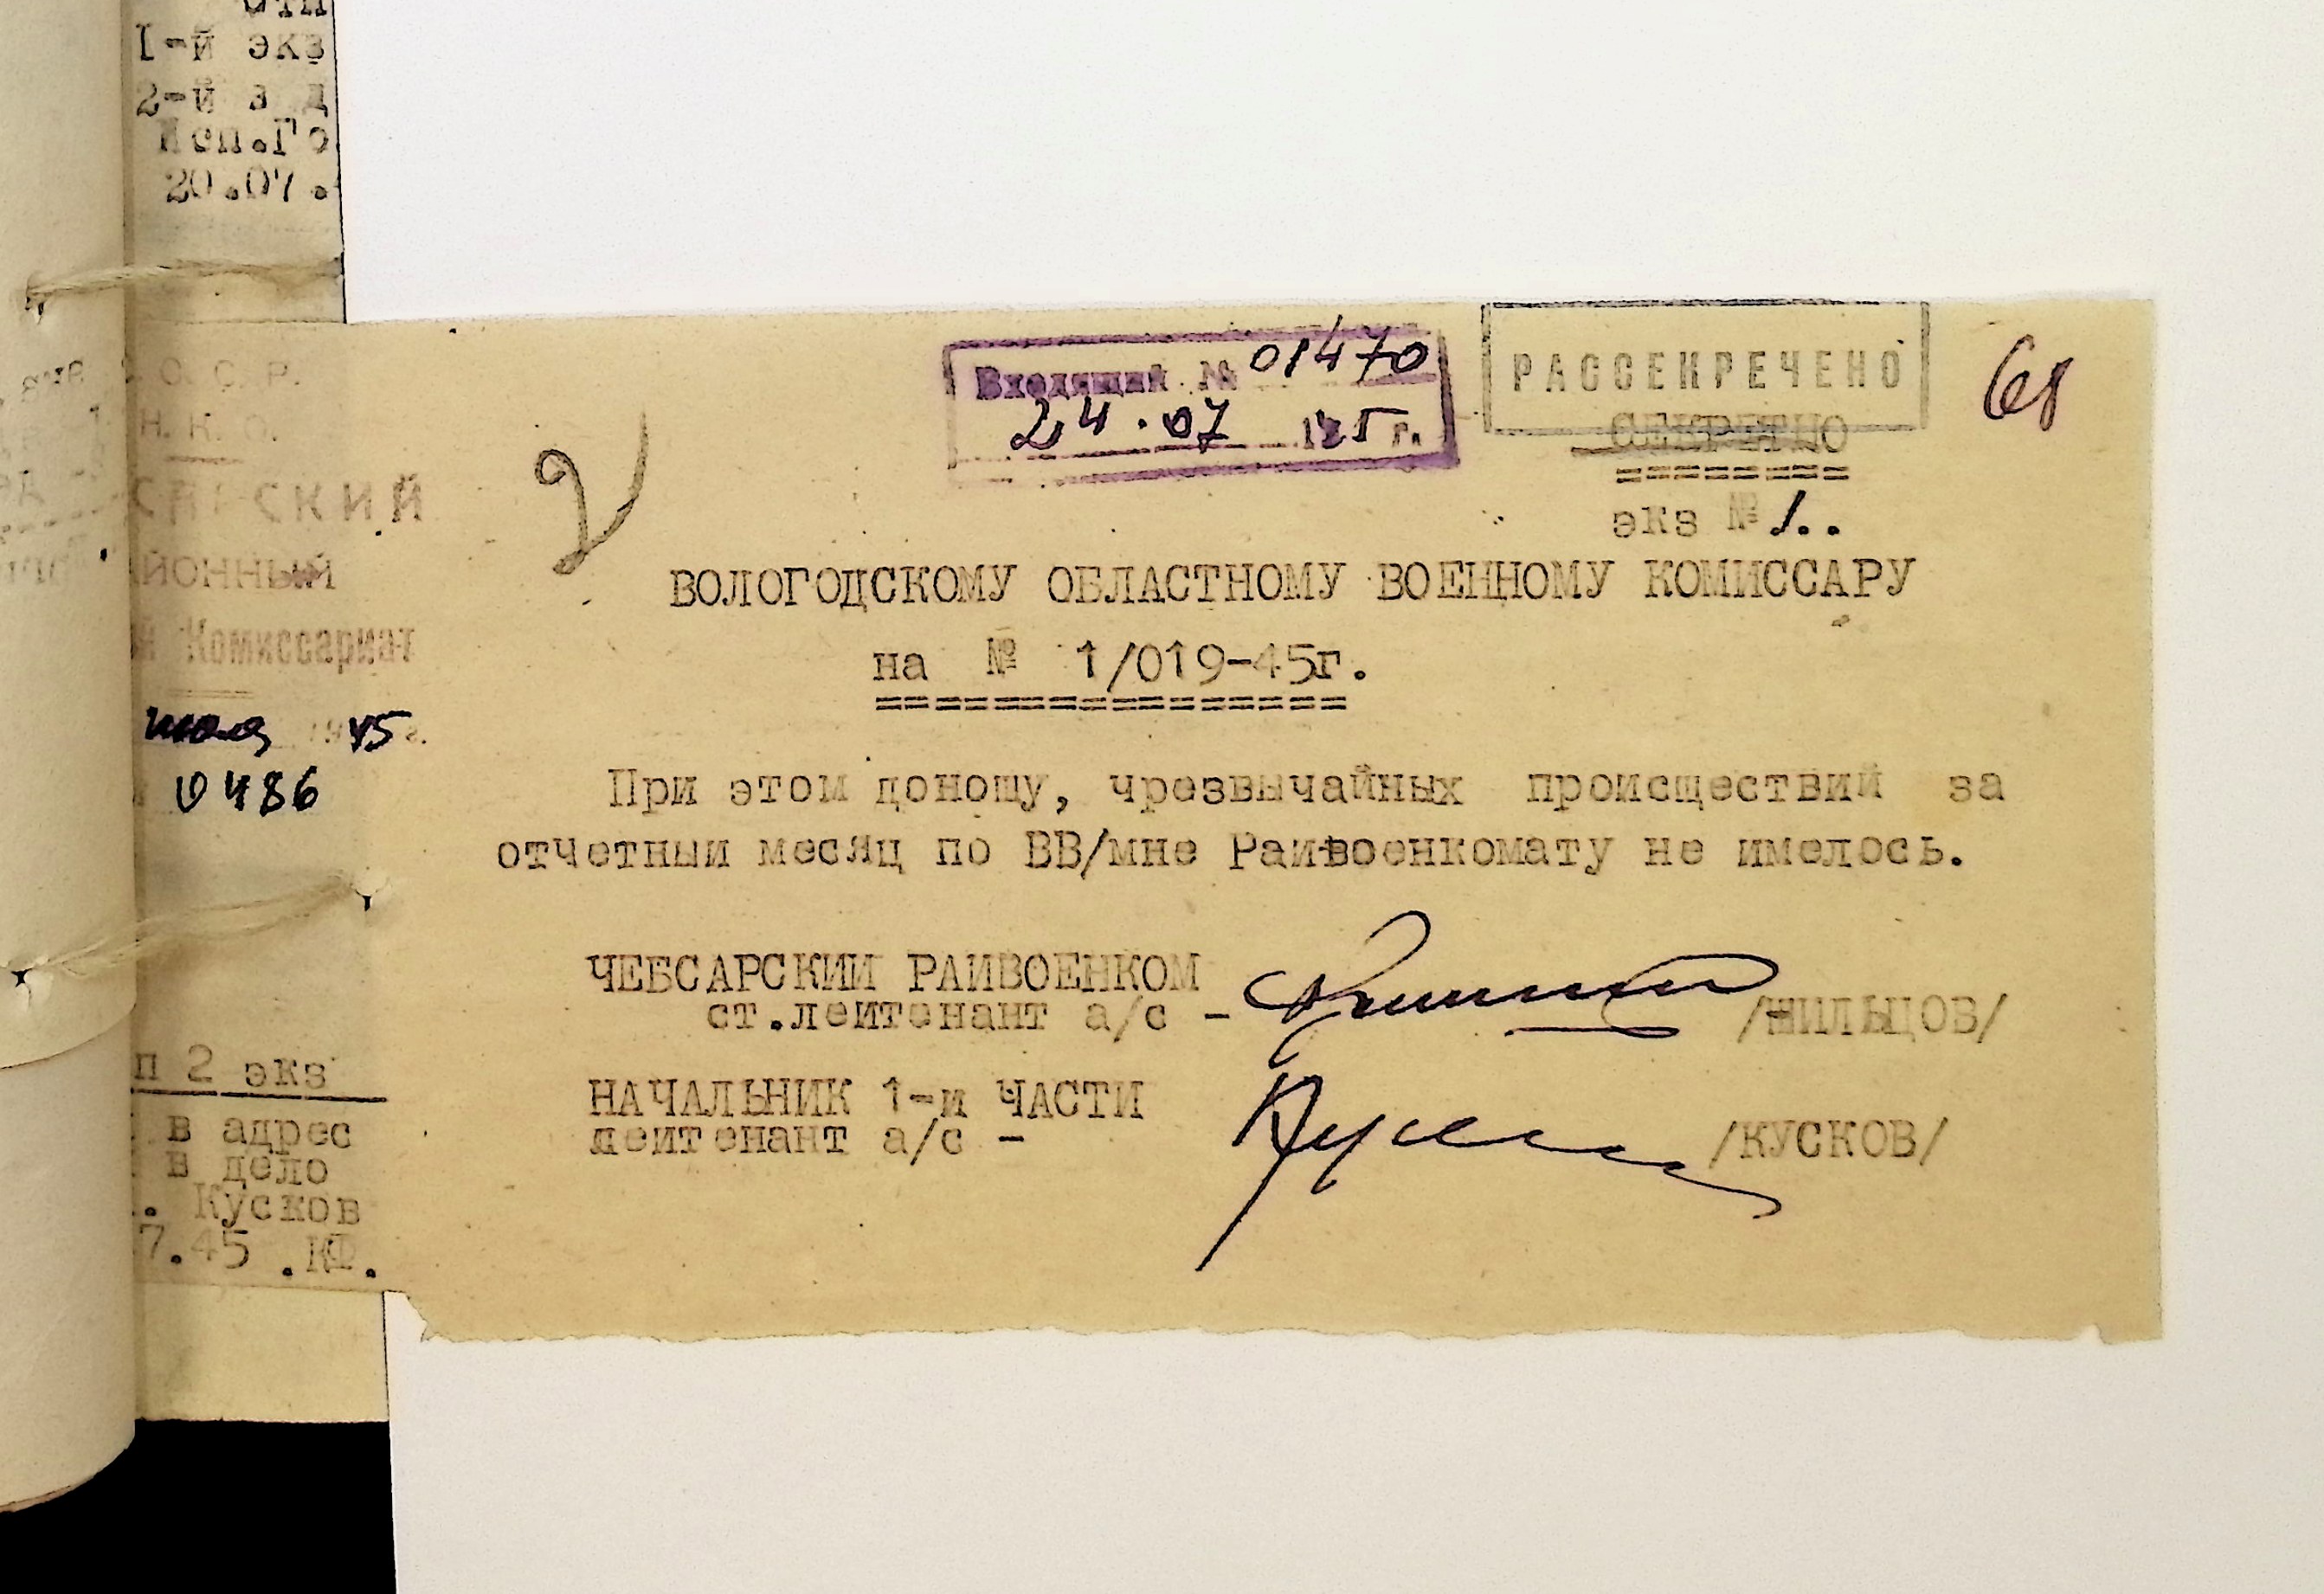 1-й экз
2-й в д
Исп.Го
20.07.
С. С. С. Р.
Н. К. О.
СКИЙ
ЙОННЫЙ
й Комиссариат
июля 1945 г.
0486
п 2 экз
в адрес
в дело
. Кусков
7.45 .КФ.
Входящий № 01470
24.07 145 г.
РАССЕКРЕЧЕНО
68
СЕКРЕТНО
========
экз № 1..
ВОЛОГОДСКОМУ ОБЛАСТНОМУ ВОЕННОМУ КОМИССАРУ
на № 1/019-45г.
================
При этом доношу, чрезвычайных происшествий за
отчетныи месяц по ВВ/мне Раивоенкомату не имелось.
ЧЕБСАРСКИИ РАИВОЕНКОМ
ст.леитенант а/с - /ЖИЛЬЦОВ/
НАЧАЛЬНИК 1-и ЧАСТИ
леитенант а/с - /КУСКОВ/